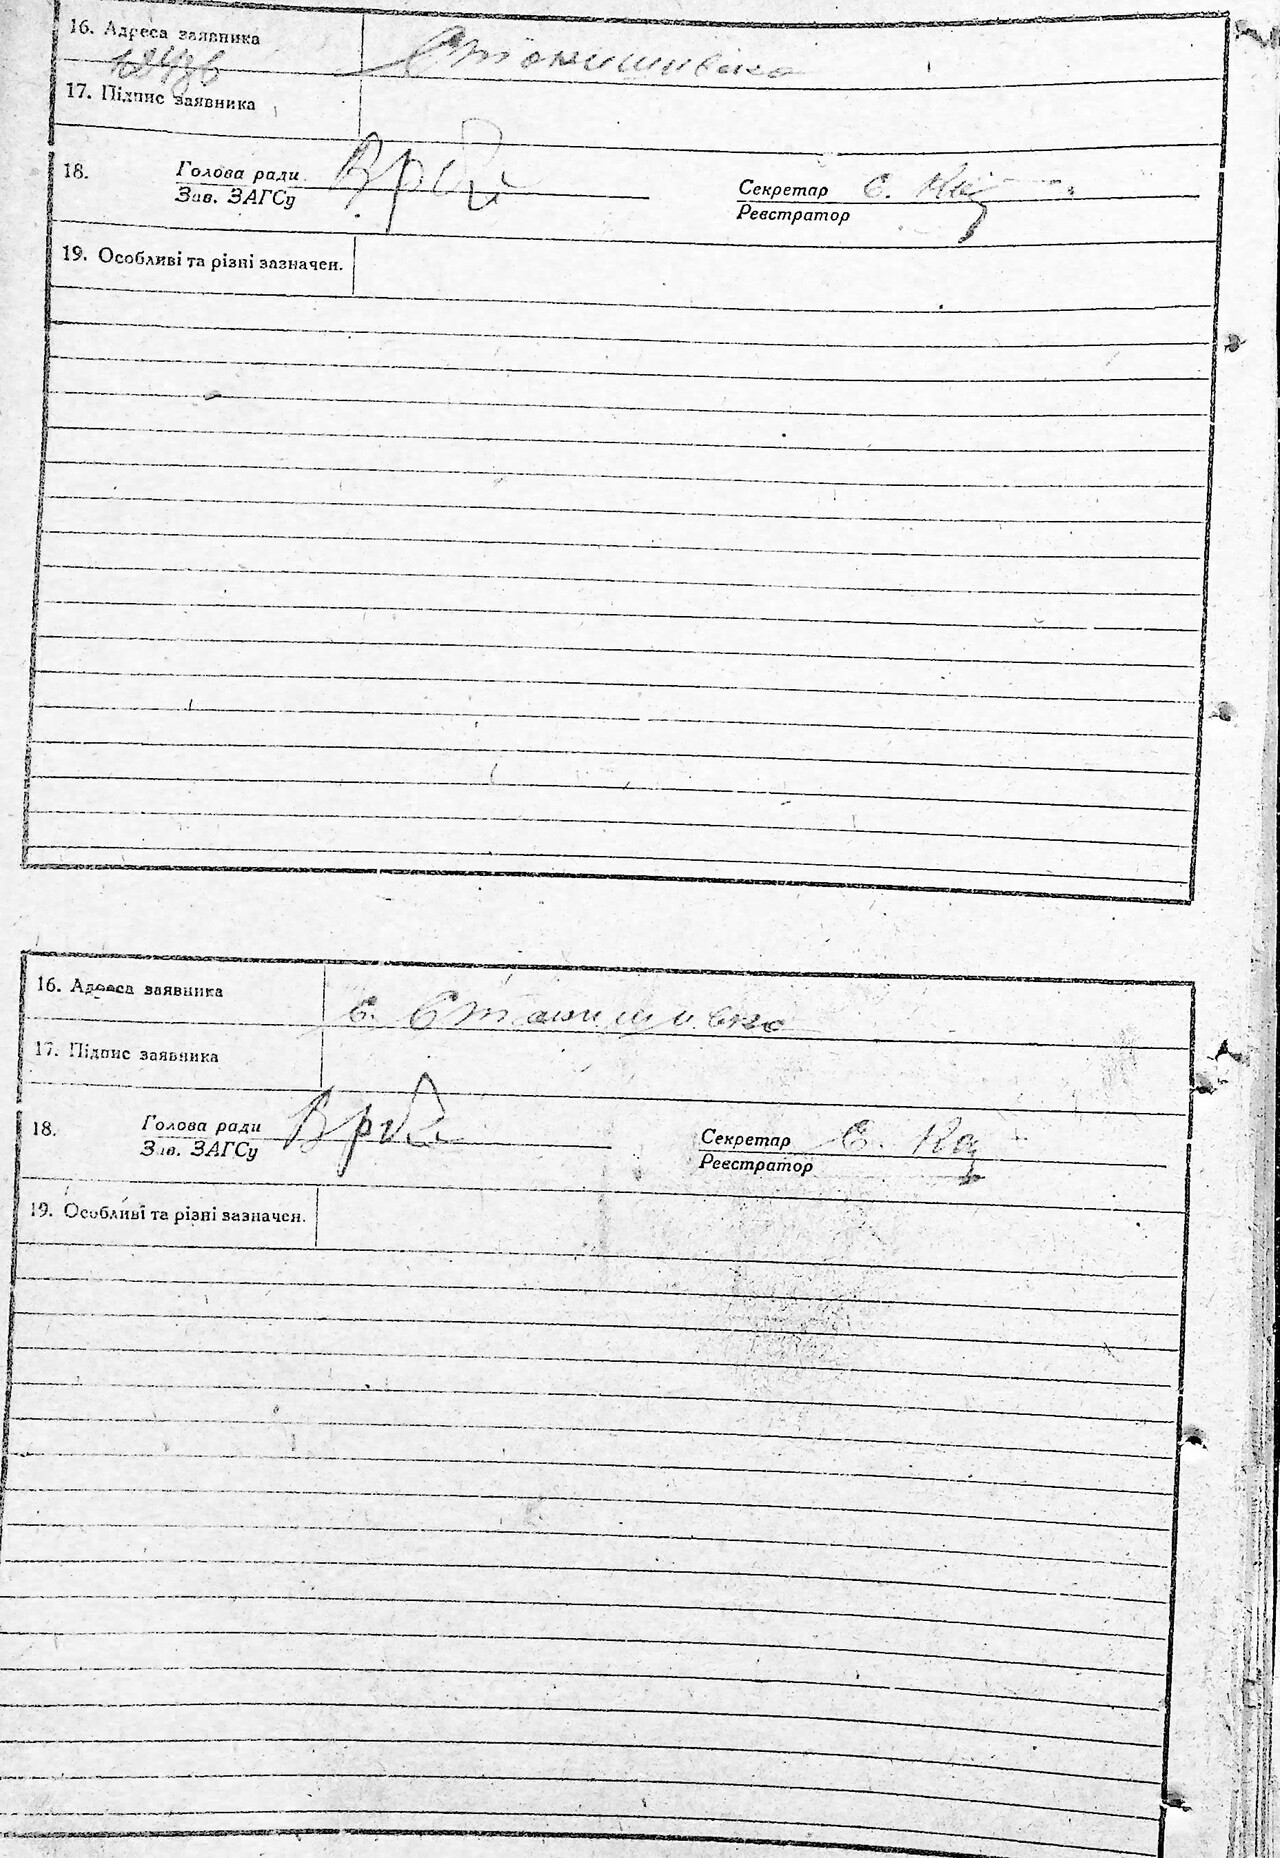 16. Адреса заявника
Станишівка
17. Підпис заявника
18.
Голова ради
Зав. ЗАГСу
Секретар С.
Реєстратор
19. Особливі та різні зазначен.
16. Адреса заявника
с. Станишівка
17. Підпис заявника
18.
Голова ради
Зав. ЗАГСу
Секретар С.
Реєстратор
19. Особливі та різні зазначен.